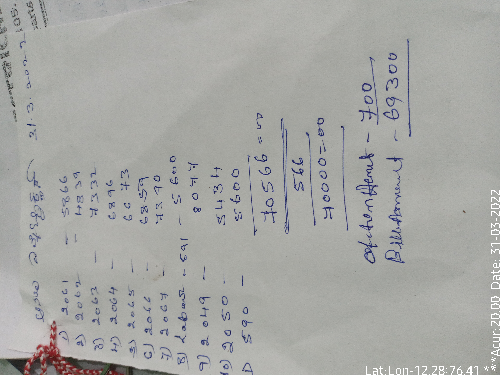 21.3.2022
1) 2061 - 5866
2) 2062 - 4839
3) 2063 - 7332
4) 2064 - 6896
5) 2065 - 6673
6) 2066 - 6859
7) 2067 - 7390
8) Labour - 591 - 5600
9) 2049 - 8077
10) 2050 - 5434
D 590 - 5600
70566=00
566
70000=00
- 700
Bill Amount - 69300
Lat:Lon-12.28:76.41 ***Acur:20.00 Date: 31-03-2022